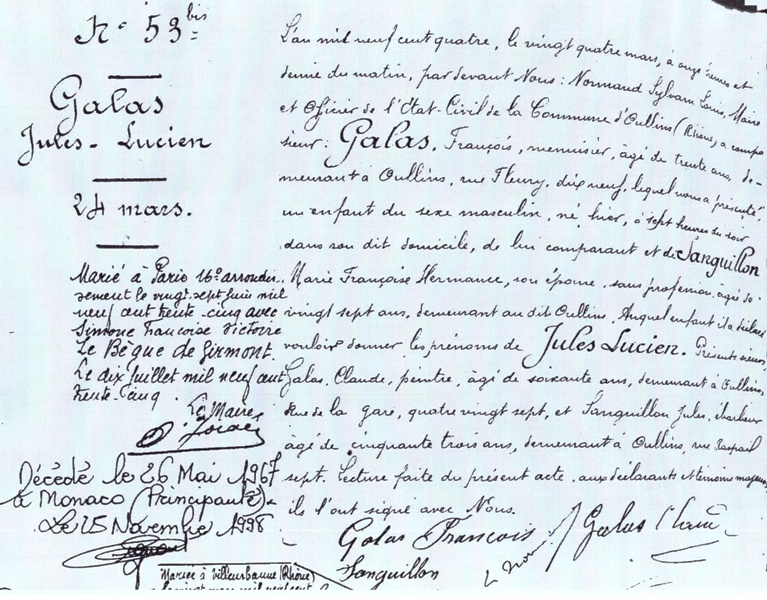 N° 53 bis
Galas
Jules-Lucien
24 mars.
Marié à Paris 16e arrondis-
sement le vingt-sept juin mil
neuf cent trente-cinq avec
Simone Francoise Victoire
Le Bègue de Girmont.
Le dix juillet mil neuf cent
trente-cinq.
Le Maire,
Décédé le 26 Mai 1967
à Monaco (Principauté).
Le 25 Novembre 1998
L'an mil neuf cent quatre, le vingt quatre mars, à onze heures et
demie du matin, par devant Nous: Normand Sylvain Louis, Maire
et Officier de l'Etat-Civil de la Commune d'Oullins (Rhône) a compa
sieur: Galas, François, menuisier, âgé de trente ans, de-
meurant à Oullins, rue Fleury, dix neuf, lequel nous a présenté
un enfant du sexe masculin, né hier, à sept heures du soir
dans son dit domicile, de lui comparant et de Sanguillon
Marie Françoise Hermance, son épouse, sans profession, âgée de
vingt sept ans, demeurant au dit Oullins. Auquel enfant il a déclaré
vouloir donner les prénoms de Jules Lucien. Présents sieurs,
Galas, Claude, peintre, âgé de soixante ans, demeurant à Oullins,
Rue de la gare, quatre vingt sept, et Sanguillon Jules,
âgé de cinquante trois ans, demeurant à Oullins, rue Raspail
sept. Lecture faite du présent acte, aux déclarants et témoins majeurs
ils l'ont signé avec Nous.
Galas François Galas Claude
Sanguillon
Marié à Villeurbanne (Rhône)